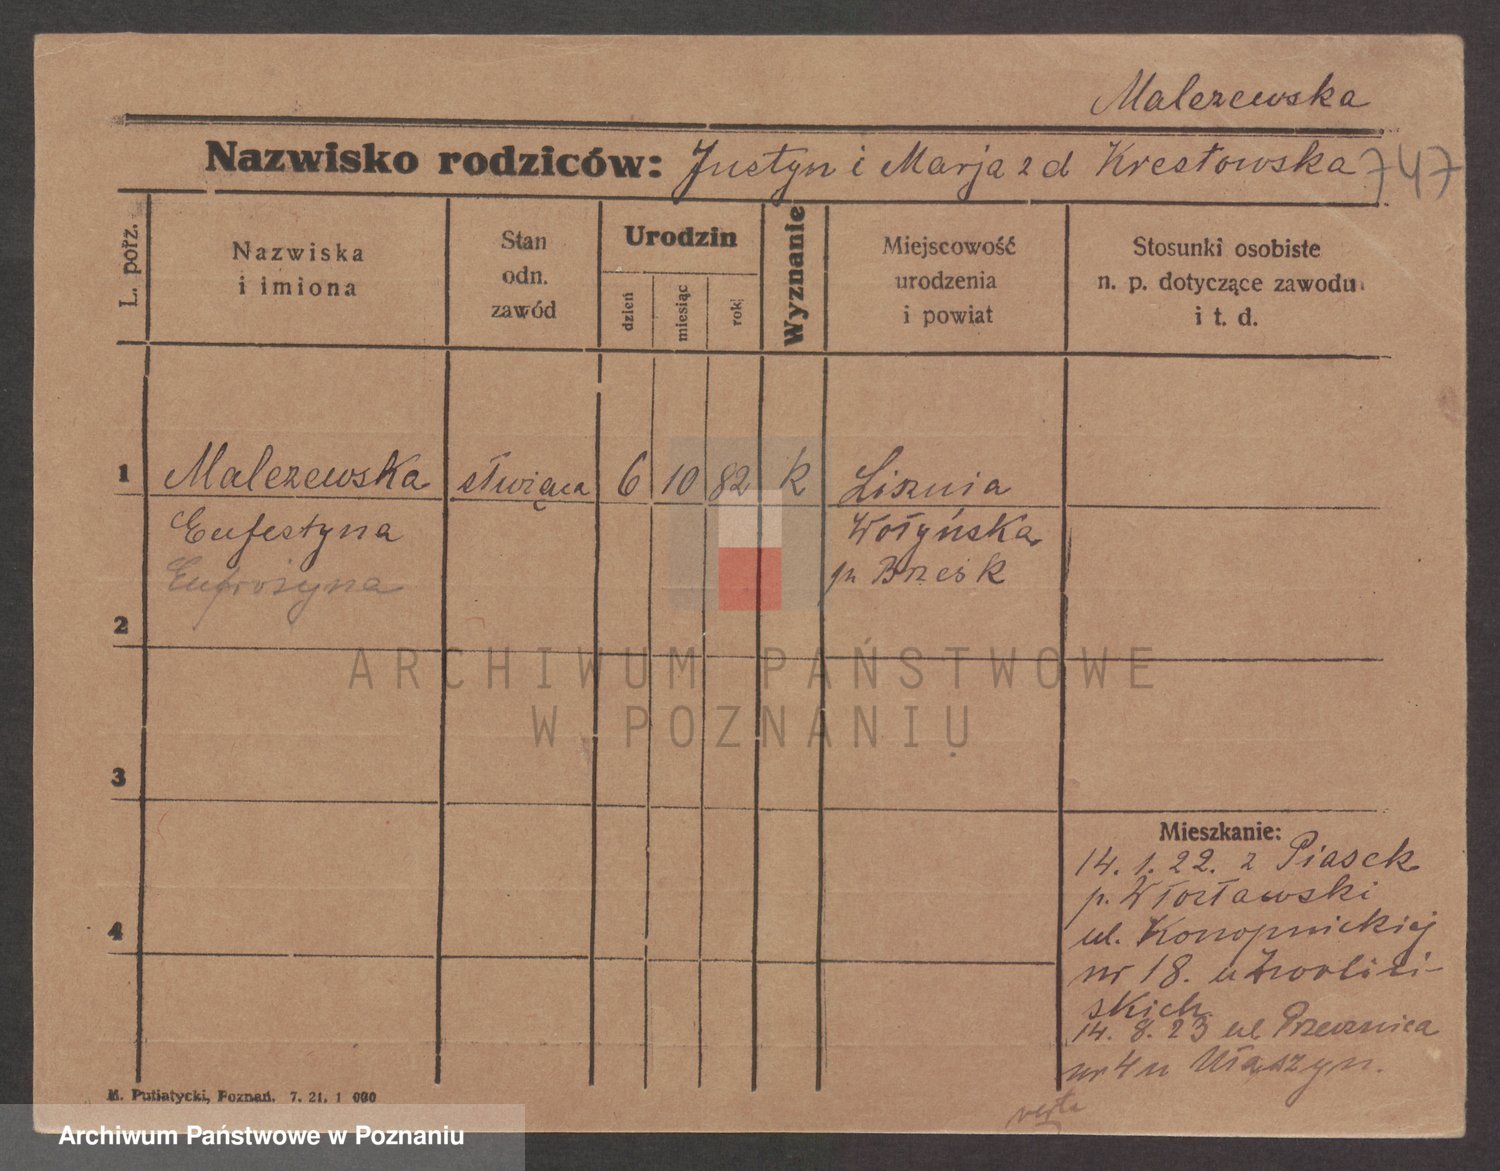 Malczewska
Nazwisko rodziców: Justyn i Marja z d Krestowska 747
L. porz.
Nazwiska
i imiona
Stan
odn.
zawód
Urodzin
dzień
miesiąc
rok
Wyznanie
Miejscowość
urodzenia
i powiat
Stosunki osobiste
n. p. dotyczące zawodu
i t. d.
1 Malczewska służąca 6 10 82 k Lisznia
Eufestyna Wołyńska
Eufrozyna p. Brzesk
2
3
4
Mieszkanie:
14. 1. 22. z Piasek
p. Włocławski
ul. Konopnickiej
nr 18. u
skich
14. 8. 23 ul Przecznica
nr 4 u
verte
M. Putiatycki, Poznań. 7. 21. 1 000
ARCHIWUM PAŃSTWOWE
W POZNANIU
Archiwum Państwowe w Poznaniu